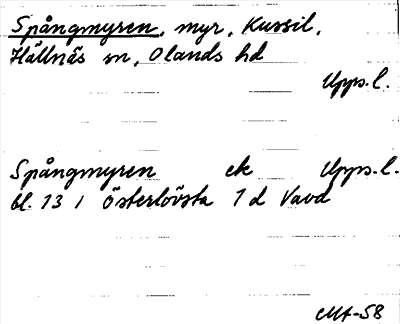 Spångmyren, myr, Kussil,
Hållnäs sn, Olands hd
Upps. l.
Spångmyren ek Upps. l.
bl. 13 i Österlövsta 1 d
Mt-58